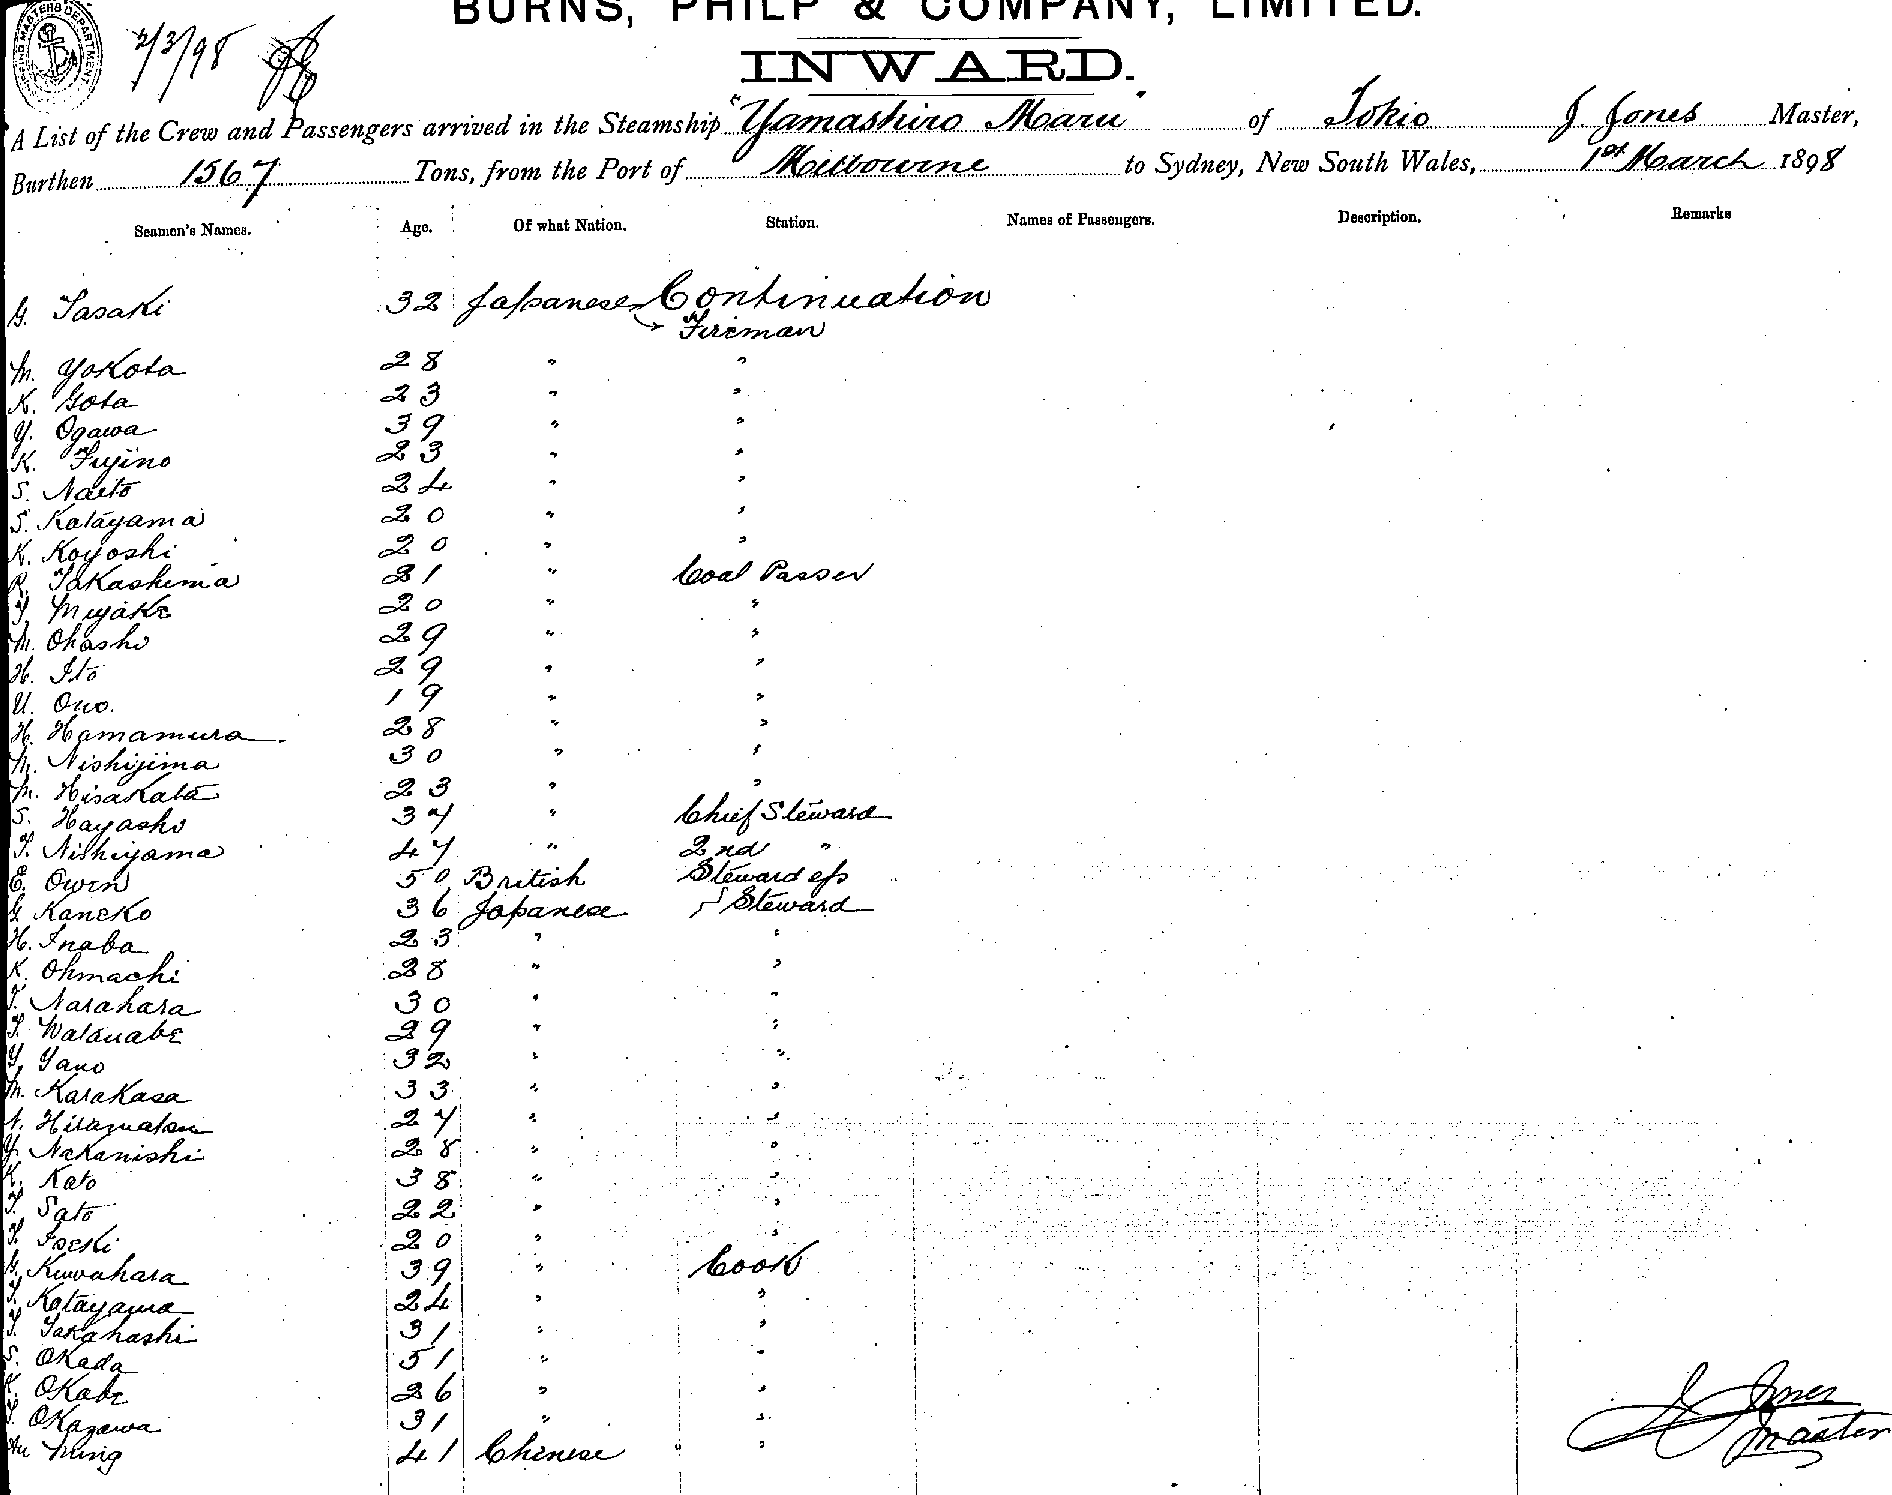 BURNS, PHILP & COMPANY, LIMITED.
INWARD.
2/3/98
A List of the Crew and Passengers arrived in the Steamship "Yamashiro Maru" of Tokio J. Jones Master,
Burthen 1567 Tons, from the Port of Melbourne to Sydney, New South Wales, 1st March 1898
Seamen's Names. Age. Of what Nation. Station. Names of Passengers. Description. Remarks
G. Sasaki 32 Japanese Continuation
Fireman
M. Yokota 28 " "
K. Gota 23 " "
Y. Ogawa 39 " "
K. Fujino 23 " "
S. Naito 24 " "
S. Katayama 20 " "
K. Koyoshi 20 " "
R. Takashima 21 " Coal Passer
T. Miyake 20 " "
M. Ohashi 29 " "
H. Ito 29 " "
U. Ono. 19 " "
H. Hamamura 28 " "
M. Nishijima 30 " "
M. Hisakata 23 " "
S. Hayashi 37 " Chief Steward
T. Nishiyama 47 " 2nd "
E. Owen 50 British Stewardess
G. Kaneko 36 Japanese Steward
H. Inaba 23 " "
K. Ohmachi 28 " "
T. Narahara 30 " "
T. Watanabe 29 " "
Y. Yano 32 " "
M. Karakasa 33 " "
N. Hisamatsu 27 " "
Y. Nakanishi 28 " "
K. Kato 38 " "
T. Sato 22 " "
T. Iseki 20 " "
G. Kuwahara 39 " Cook
T. Katayama 24 " "
T. Takahashi 31 " "
S. Okada 51 " "
K. Okabe 26 " "
T. Okazawa 31 " "
Ming 41 Chinese "
J. Jones
Master